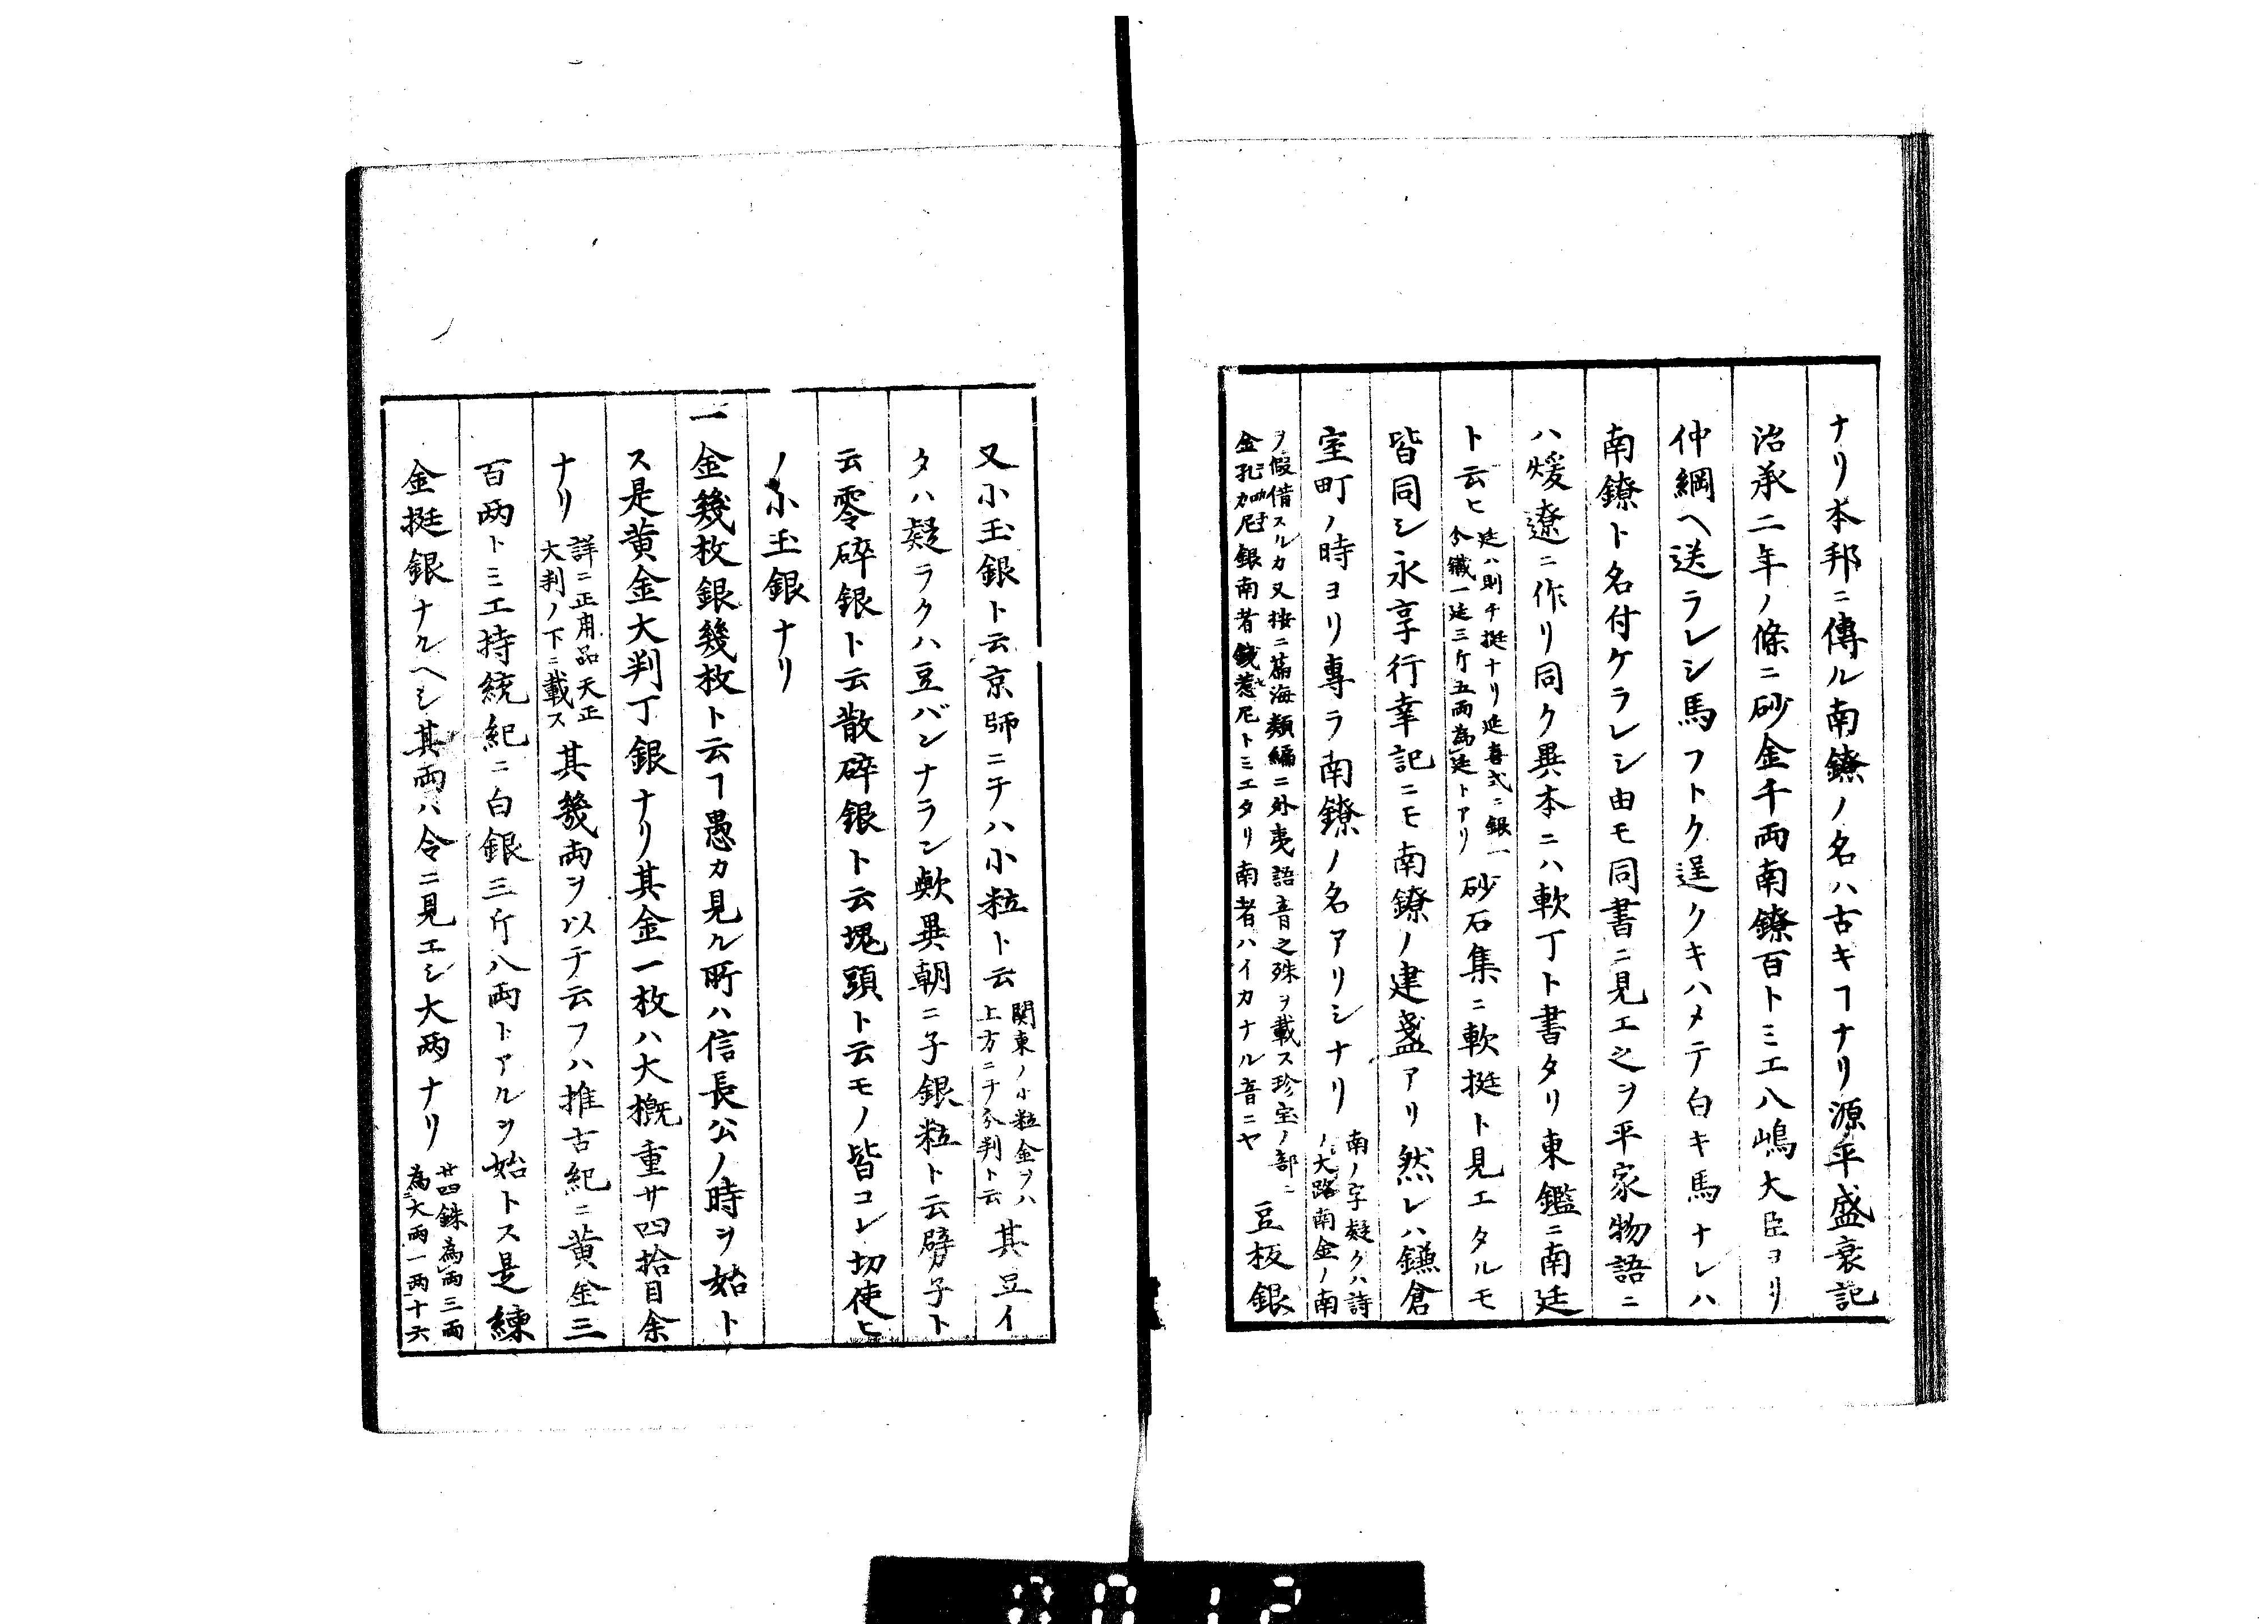 ナリ本邦ニ傳ル南鐐ノ名ハ古キヿナリ源平盛衰記
治承二年ノ條ニ砂金千両南鐐百トミエ八嶋大臣ヨリ
仲綱ヘ送ラレシ馬フトク逞クキハメテ白キ馬ナレハ
南鐐ト名付ケラレシ由モ同書ニ見エ之ヲ平家物語ニ
ハ煖遼ニ作リ同ク異本ニハ軟丁ト書タリ東鑑ニ南廷
ト云ヒ
廷ハ則チ挺ナリ延喜式ニ銀一
分鐵一廷三斤五両為廷トアリ
砂石集ニ軟挺ト見エタルモ
皆同シ永享行幸記ニモ南鐐ノ建盞アリ然レハ鎌倉
室町ノ時ヨリ專ラ南鐐ノ名アリシナリ
南ノ字疑クハ詩
ノ大路南金ノ南
ヲ假借スルカ又按ニ篇海類編ニ外夷語音之殊ヲ載ス珍宝ノ部ニ
金孔加尼銀南者錢惹尼トミエタリ南者ハイカナル音ニヤ
豆板銀
又小玉銀ト云京師ニテハ小粒ト云
関東ノ小粒金ヲハ
上方ニテ分判ト云
其豆イ
タハ疑ラクハ豆バンナラン歟異朝ニ子銀粒ト云劈子ト
云零碎銀ト云散碎銀ト云塊頭ト云モノ皆コレ切使ヒ
ノ小玉銀ナリ
一金幾枚銀幾枚ト云ヿ愚カ見ル所ハ信長公ノ時ヲ始ト
ス是黄金大判丁銀ナリ其金一枚ハ大概重サ四拾目余
ナリ
詳ニ正用品天正
大判ノ下ニ載ス
其幾両ヲ以テ云フハ推古紀ニ黄金三
百両トミエ持統紀ニ白銀三斤八両トアルヲ始トス是練
金挺銀ナルヘシ其両ハ令ニ見エシ大両ナリ
廿四銖為両三両
為大両一両十六